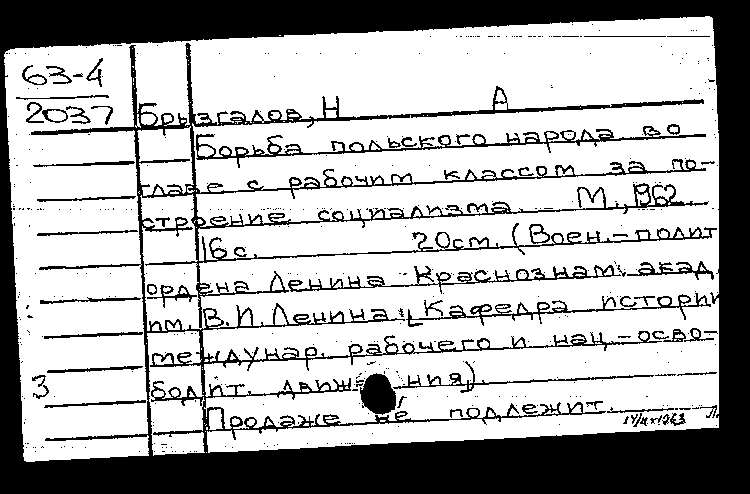 63-4
2037 Брызгалов, Н А
Борьба польского народа во
главе с рабочим классом за по-
строение социализма. М., 1962.
16 с. 20 см. (Воен.-полит
ордена Ленина Краснознам. акад.
им. В.И. Ленина. Кафедра истории
междунар. рабочего и нац.-осво-
бодит. движения).
3
Продаже не подлежит.
Л.